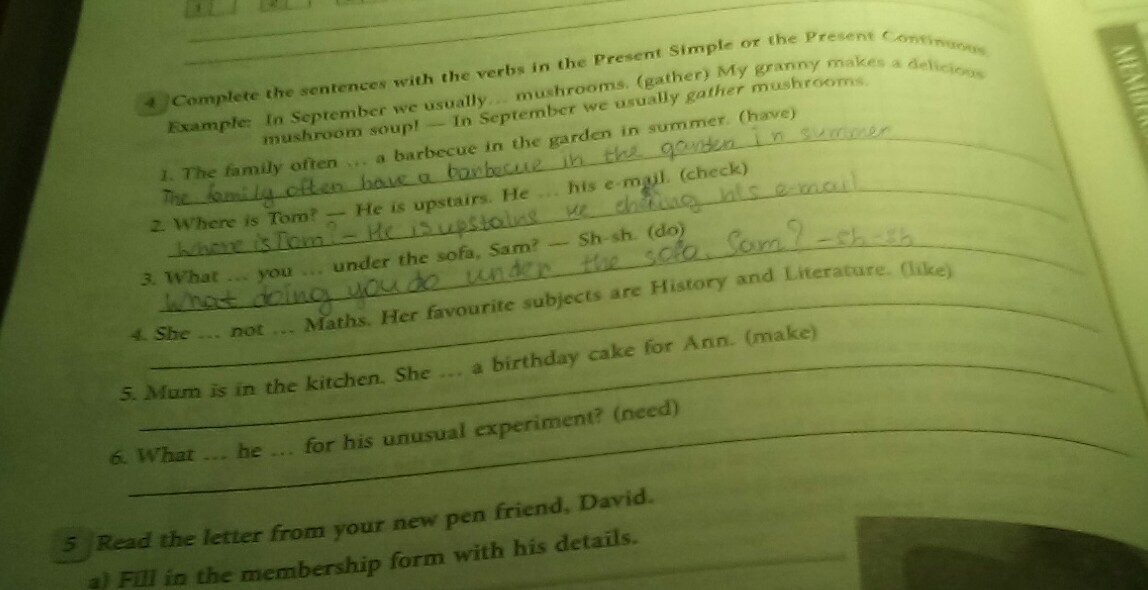 4 Complete the sentences with the verbs in the Present Simple or the Present Continuous.
Example: In September we usually ... mushrooms. (gather) My granny makes a delicious
mushroom soup! — In September we usually gather mushrooms.
1. The family often ... a barbecue in the garden in summer. (have)
The family often have a barbecue in the garden in summer
2. Where is Tom? — He is upstairs. He ... his e-mail. (check)
Where is Tom? - He is upstains He his e-mail
3. What ... you ... under the sofa, Sam? — Sh-sh. (do)
What doing you do under the sofa, Sam? - sh-sh
4. She ... not ... Maths. Her favourite subjects are History and Literature. (like)
5. Mum is in the kitchen. She ... a birthday cake for Ann. (make)
6. What ... he ... for his unusual experiment? (need)
5 Read the letter from your new pen friend, David.
a) Fill in the membership form with his details.